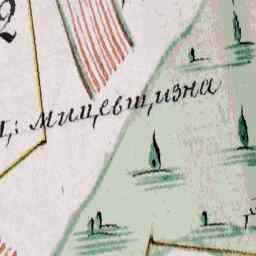 2
ц: мицевщизна